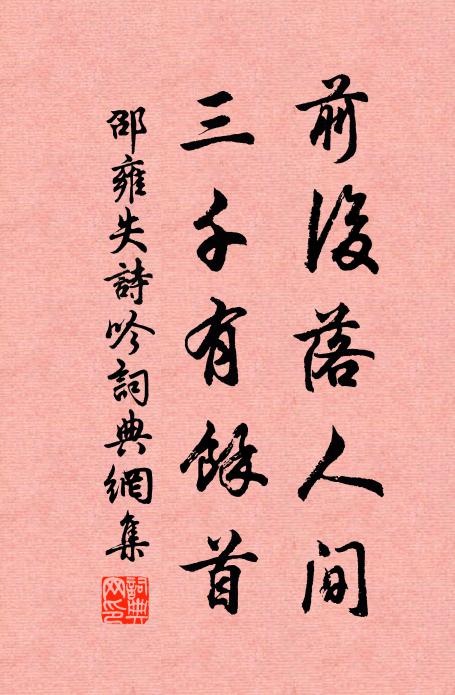 前後落人间
三千有餘首
邵雍失詩吟詞典網集
詞典網印